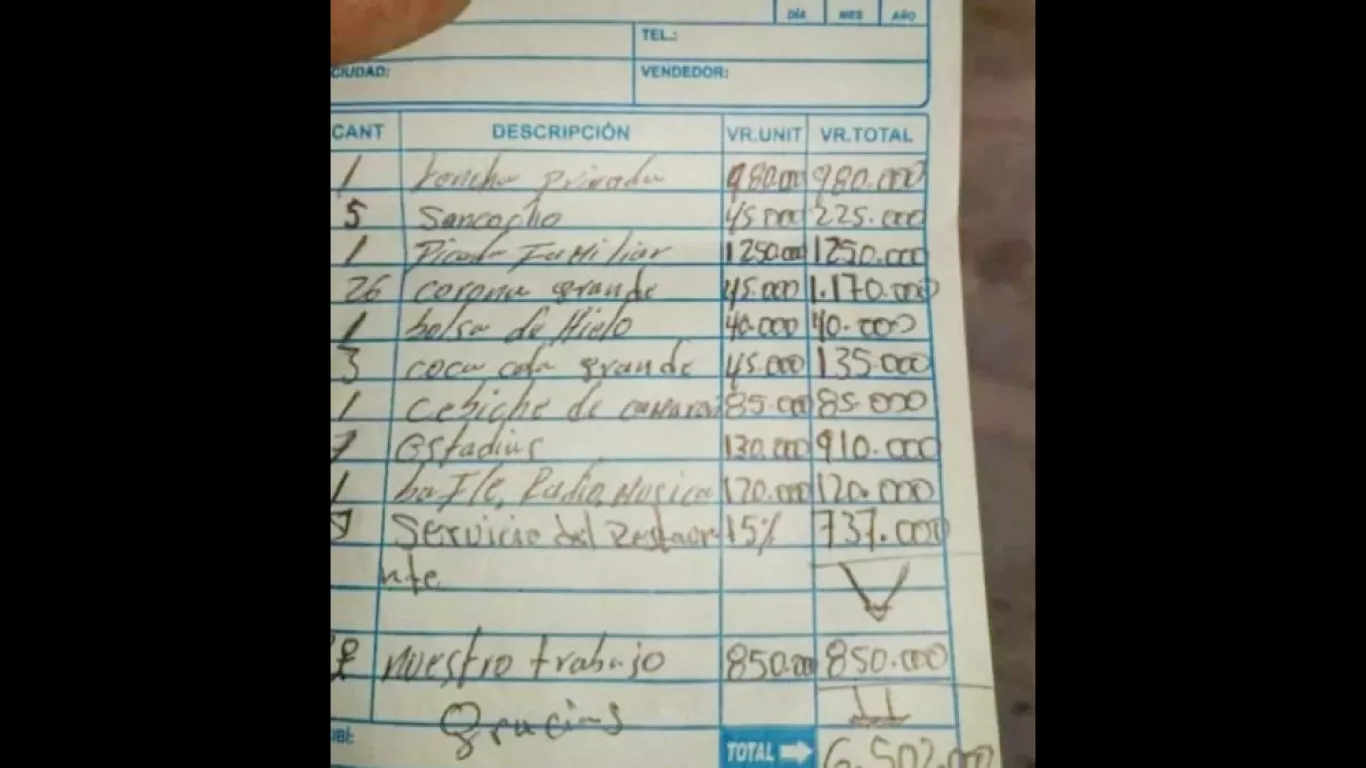 DÍA MES AÑO
TEL.:
CIUDAD: VENDEDOR:
CANT DESCRIPCIÓN VR.UNIT VR.TOTAL
1 Loncha privada 980.000 980.000
5 Sancocho 45.000 225.000
1 Picada Familiar 1250.000 1250.000
26 corona grande 45.000 1.170.000
1 bolsa de Hielo 40.000 40.000
3 coca cola grande 45.000 135.000
1 Cebiche de 85.000 85.000
7 estadius 130.000 910.000
1 bafle, Radio, Musica 120.000 120.000
Servicio del Restaura 15% 737.000
nte
nuestro trabajo 850.000 850.000
Gracias
TOTAL 6.502.000